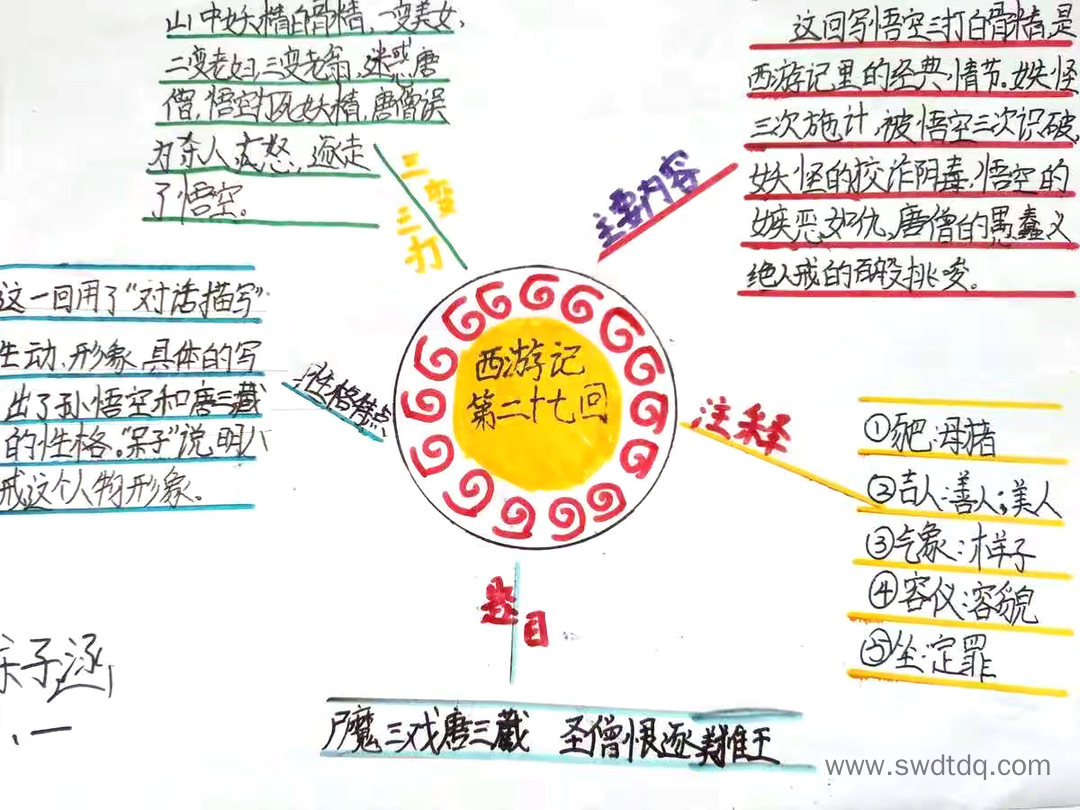 山中妖精白骨精,一变美女,
二变老妇,三变老翁,迷惑唐
僧,悟空打死妖精,唐僧误
为杀人,发怒,逐走
了悟空。
三变
三打
主要内容
这回写悟空三打白骨精,是
西游记里的经典情节。妖怪
三次施计,被悟空三次识破,
妖怪的狡诈阴毒,悟空的
嫉恶如仇,唐僧的愚蠢义
绝,八戒的百般挑唆。
这一回用了“对话描写”
生动、形象、具体的写
出了孙悟空和唐三藏
的性格。“呆子”说明八
戒这个人物形象。
性格特点
西游记
第二十七回
注释
①豝:母猪
②吉人:善人;美人
③气象:样子
④容仪:容貌
⑤坐:定罪
题目
尸魔三戏唐三藏 圣僧恨逐美猴王
子涵
www.swdtdq.com